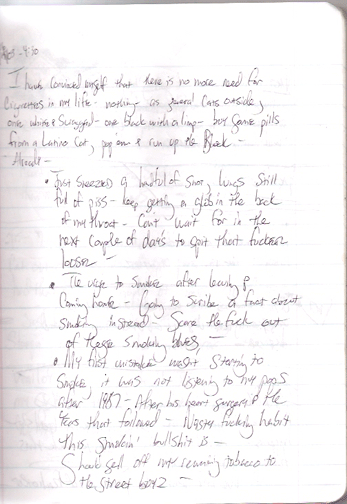 I have convinced myself that there is no more need for
Cigarettes in my life - nothing as several cats outside,
one white & - one black with a limp - buy some pills
from a Latino Cat, pop em & run up the Block -
• Just sneezed a handful of snot, lungs still
full of piss - keep getting a glob in the back
of my throat - Can't wait for in the
next couple of days to spit that fucker
loose -
• The urge to smoke after leaving &
Coming home - Going to scribe a fact about
smoking instead - Scare the fuck out
of these smoking blues -
• My first mistake wasn't starting to
smoke, it was not listening to my pops
after 1987 - After his heart surgery & the
years that followed - Nasty fucking habit
this smokin' bullshit is -
Should sell off my remaining tobacco to
the street boyz -